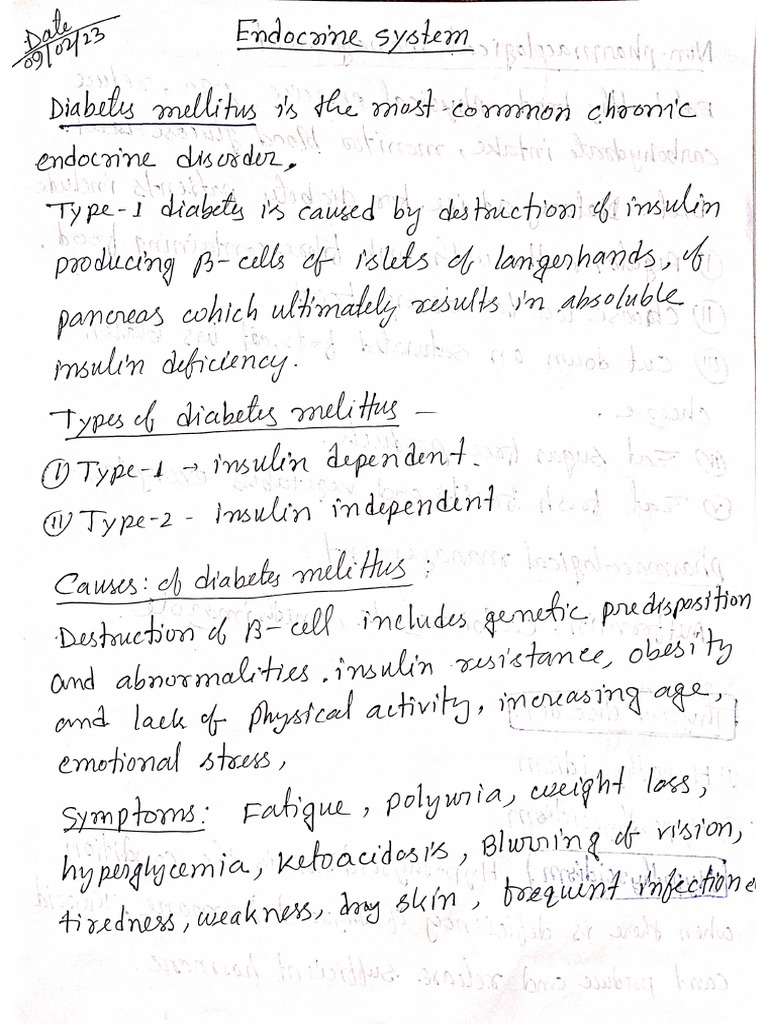 Date
09/02/23
Endocrine system
Diabetes mellitus is the most common chronic
endocrine disorder.
Type-1 diabetes is caused by destruction of insulin
producing β-cells of islets of langerhands, of
pancreas which ultimately results in absoluble
insulin deficiency.
Types of diabetes melittus –
(I) Type-1 → insulin dependent.
(II) Type-2 - Insulin independent
Causes: of diabetes melittus :
Destruction of β-cell includes genetic predisposition
and abnormalities. insulin resistance, obesity
and lack of physical activity, increasing age,
emotional stress,
Symptoms: Fatigue, polyuria, weight loss,
hyperglycemia, ketoacidosis, Blurring of vision,
tiredness, weakness, dray skin, frequent infection